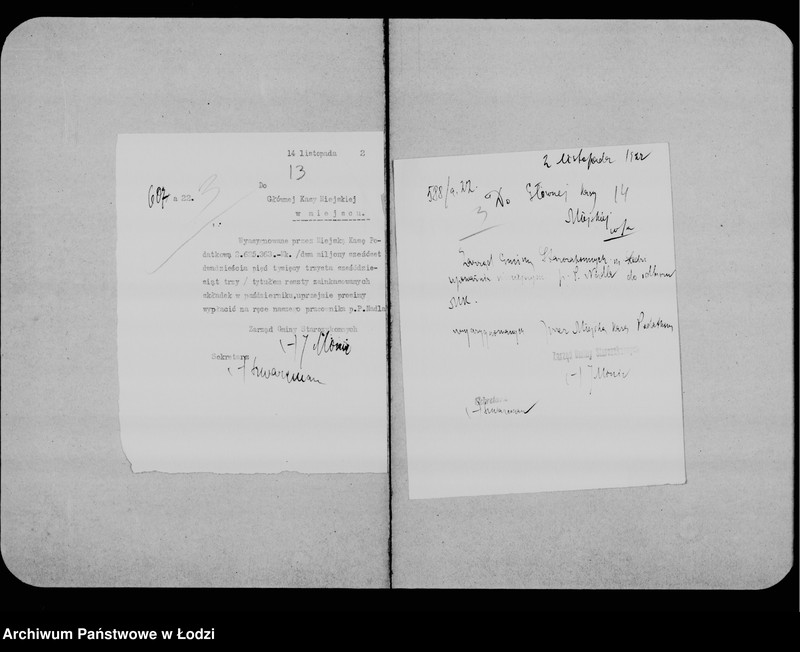 14 listopada 2
13
607 a 22. 3
Do
Głównej Kasy Miejskiej
w miejscu.
Wyasygnowane przez Miejską Kasę Po-
datkową 2.625.363.-Mk. /dwa miljony sześćset
dwadzieścia pięć tysięcy trzysta sześćdzie-
siąt trzy / tytułem reszty zainkasowanych
składek w październiku, uprzejmie prosimy
wypłacić na ręce naszego pracownika p.P.Nadla
Zarząd Gminy Starozakonnych
(-) J Monic
Sekretarz
(-) Szwarcman
2 listopada 1922
588/a.22.
3
Do Głównej Kasy 14
Miejskiej
w/m
Zarząd Gminy Starozakonnych w
p. P. Nadla do odbioru
Mk.
wyasygnowanych przez Miejską Kasę Podatkową
Zarząd Gminy Starozakonnych
(-) J Monic
Sekretarz
(-) Szwarcman
Archiwum Państwowe w Łodzi